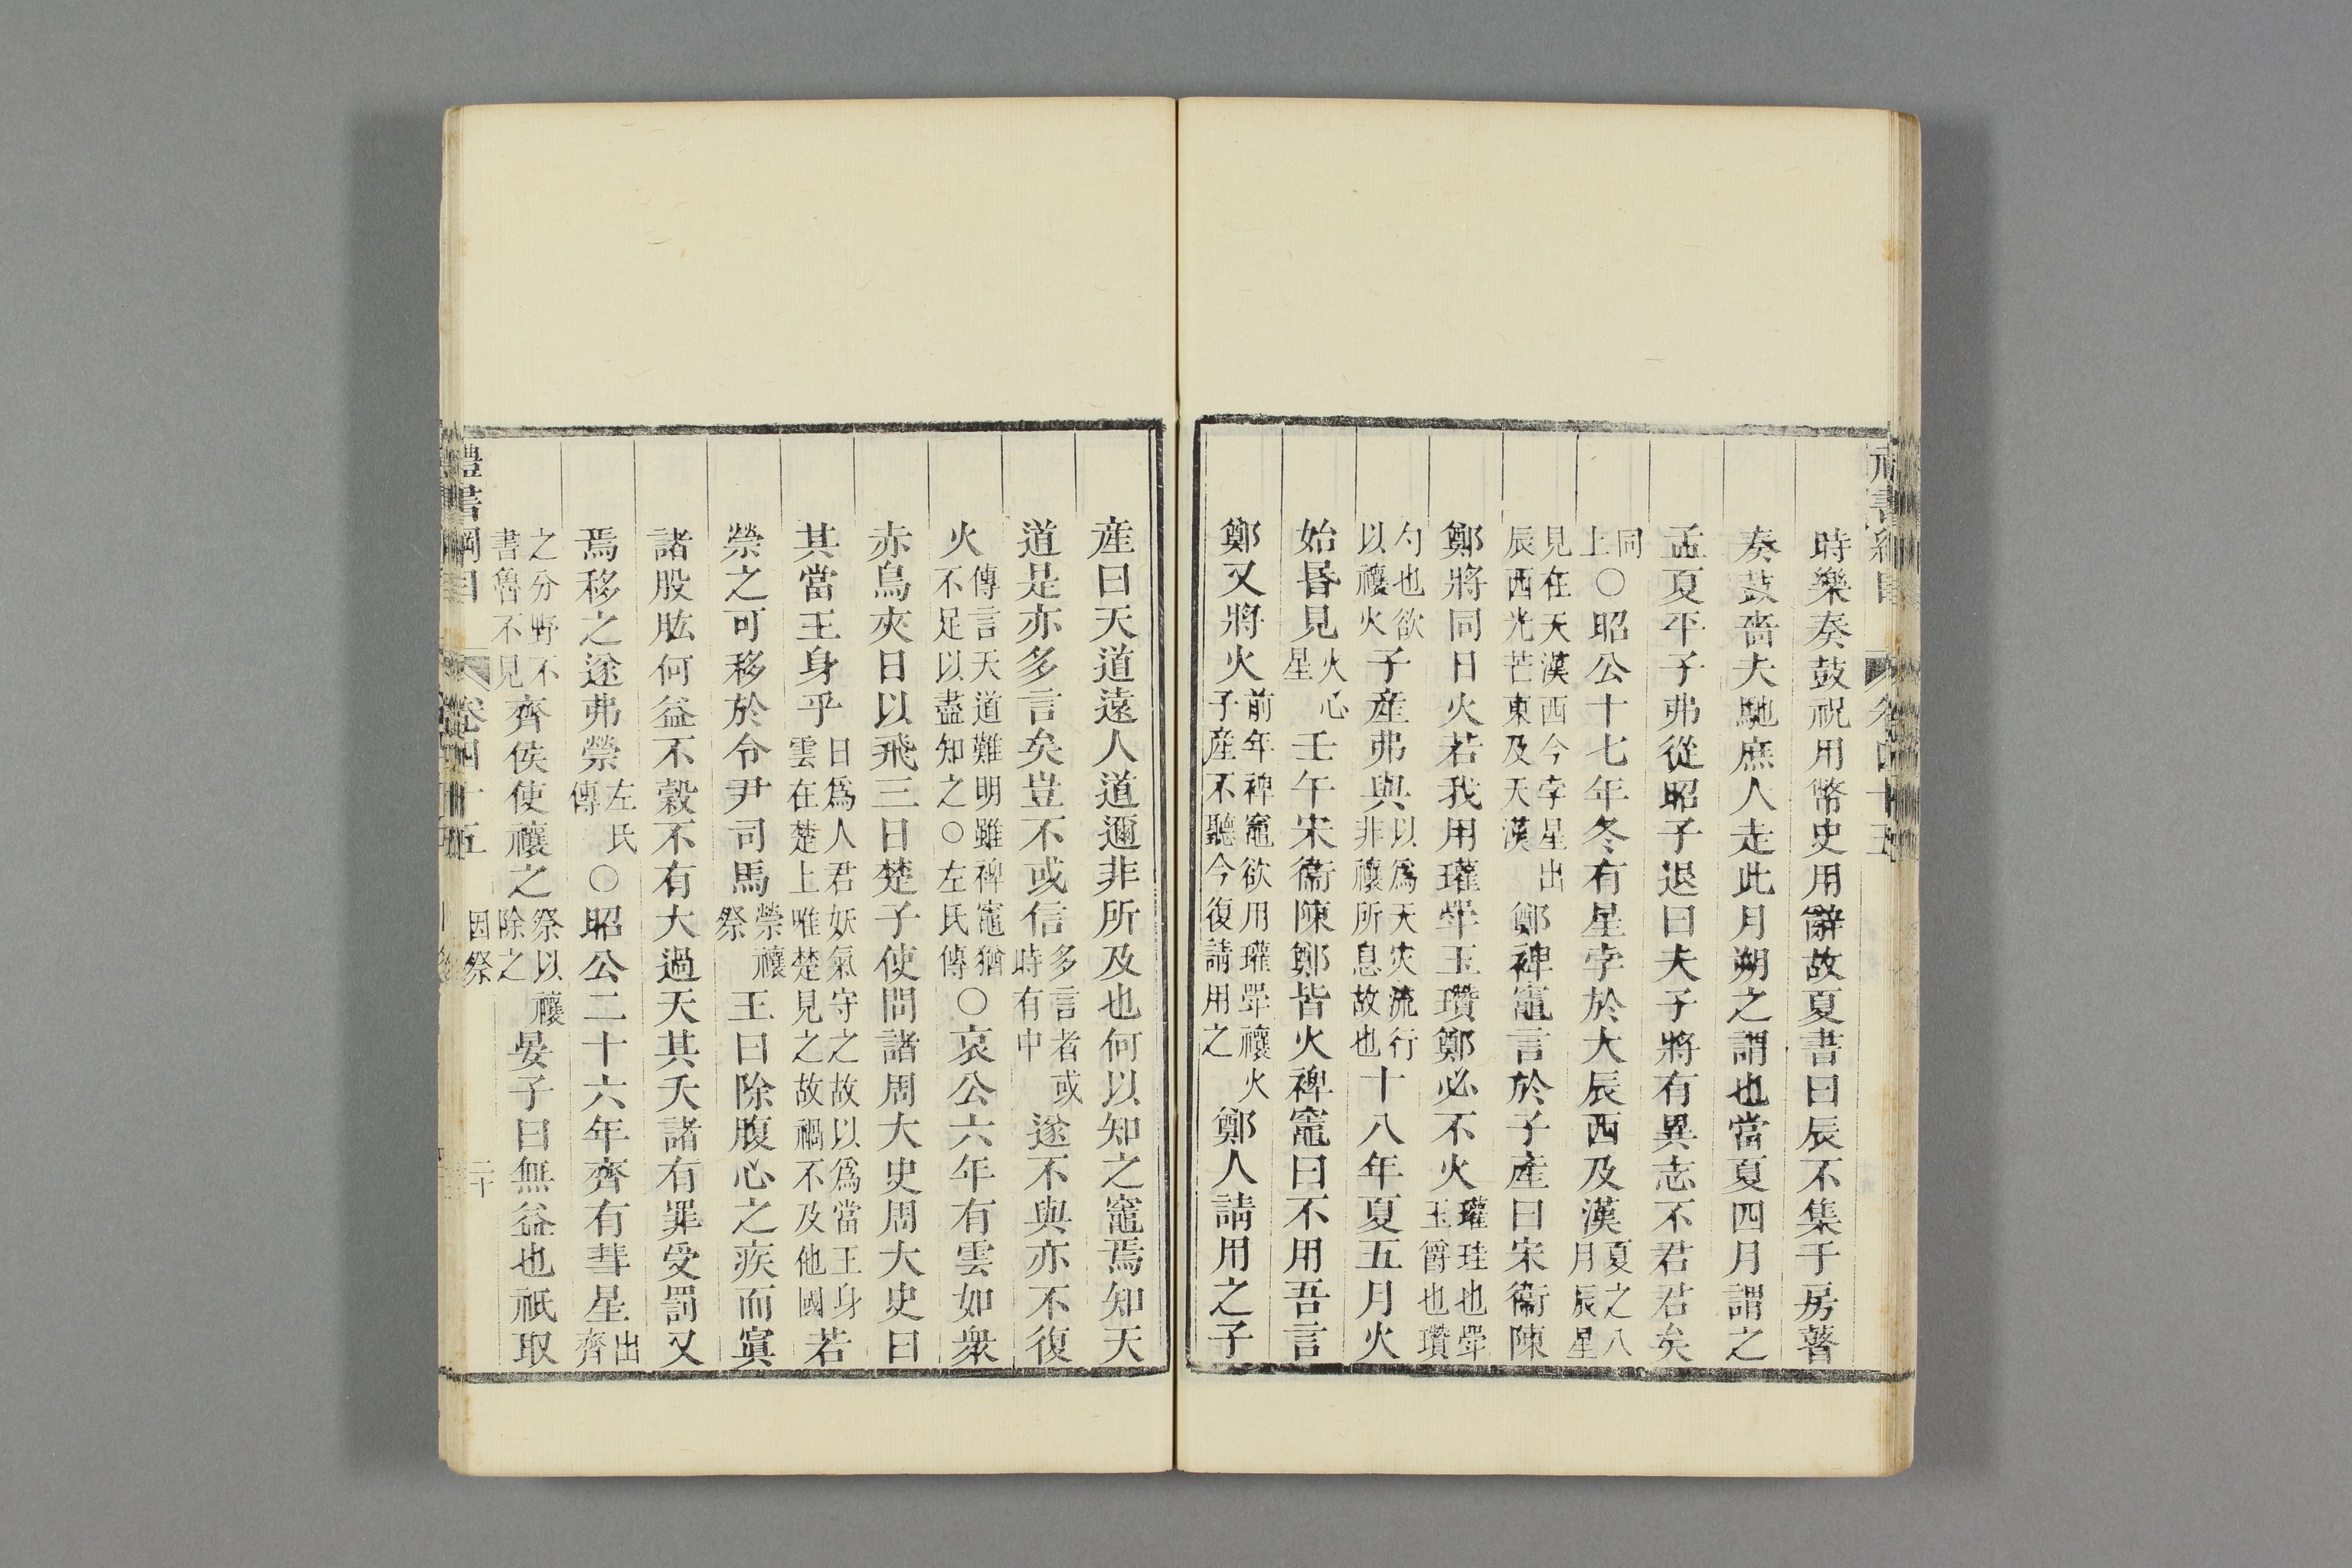 時樂奏鼓祝用幣史用辭故夏書曰辰不集于房瞽
奏鼓嗇夫馳庶人走此月朔之謂也當夏四月謂之
孟夏平子弗從昭子退曰夫子將有異志不君君矣
同上○昭公十七年冬有星孛於大辰西及漢夏之八月辰星
見在天漢西今孛星出辰西光芒東及天漢鄭裨竈言於子產曰宋衞陳
鄭將同日火若我用瓘斝玉瓚鄭必不火瓘珪也斝玉爵也瓚
勺也欲以禳火子產弗與以為天灾流行非禳所息故也十八年夏五月火
始昏見火心星壬午宋衞陳鄭皆火裨竈曰不用吾言
鄭又將火前年裨竈欲用瓘斝禳火子產不聽今復請用之鄭人請用之子
產曰天道遠人道邇非所及也何以知之竈焉知天
道是亦多言矣豈不或信多言者或時有中遂不與亦不復
火傳言天道難明雖裨竈猶不足以盡知之○左氏傳○哀公六年有雲如衆
赤鳥夾日以飛三日楚子使問諸周大史周大史曰
其當王身乎日爲人君妖氣守之故以爲當王身雲在楚上唯楚見之故禍不及他國若
禜之可移於令尹司馬禜禳祭王曰除腹心之疾而寘
諸股肱何益不穀不有大過天其夭諸有罪受罰又
焉移之遂弗禜左氏傳○昭公二十六年齊有彗星出齊
之分野不書魯不見齊侯使禳之祭以禳除之晏子曰無益也祇取
禮書綱目 卷四十五 因祭 二十